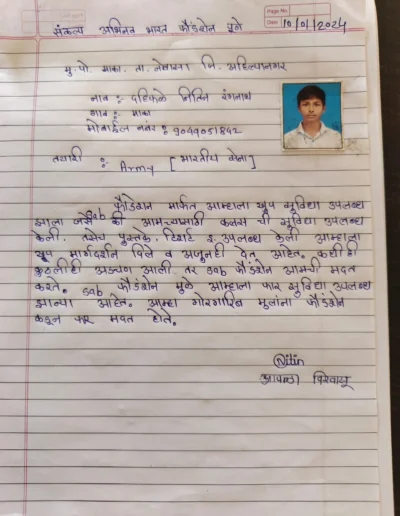 Page No.
Date 10/01/2024
संकल्प अभिनव भारत फौंडेशन पुणे
मु. पो. माका. ता. नेवासा जि. अहिल्यानगर
नाव :- दहिफळे नितिन रंगनाथ
गाव :- माका
मोबाईल नंबर :- 9049051842
तयारी :- Army [भारतीय सेना]
sab फौंडेशन मार्फत आम्हाला खुप सुविधा उपलब्ध
झाला जसे की आमच्यासाठी क्लास ची सुविधा उपलब्ध
केली. तसेच पुस्तके, टिशर्ट इ. उपलब्ध केली आम्हाला
खुप मार्गदर्शन दिले व अजुनही देत आहेत. कधी ही
कुठलीही अडचण आली तर sab फौंडेशन आमची मदत
करते. sab फौंडेशन मुळे आम्हाला फार सुविधा उपलब्ध
झाल्या आहेत. आम्हा गोरगरिब मुलांना फौंडेशन
कडून फार मदत होते.
Nitin
आपला विश्वासू